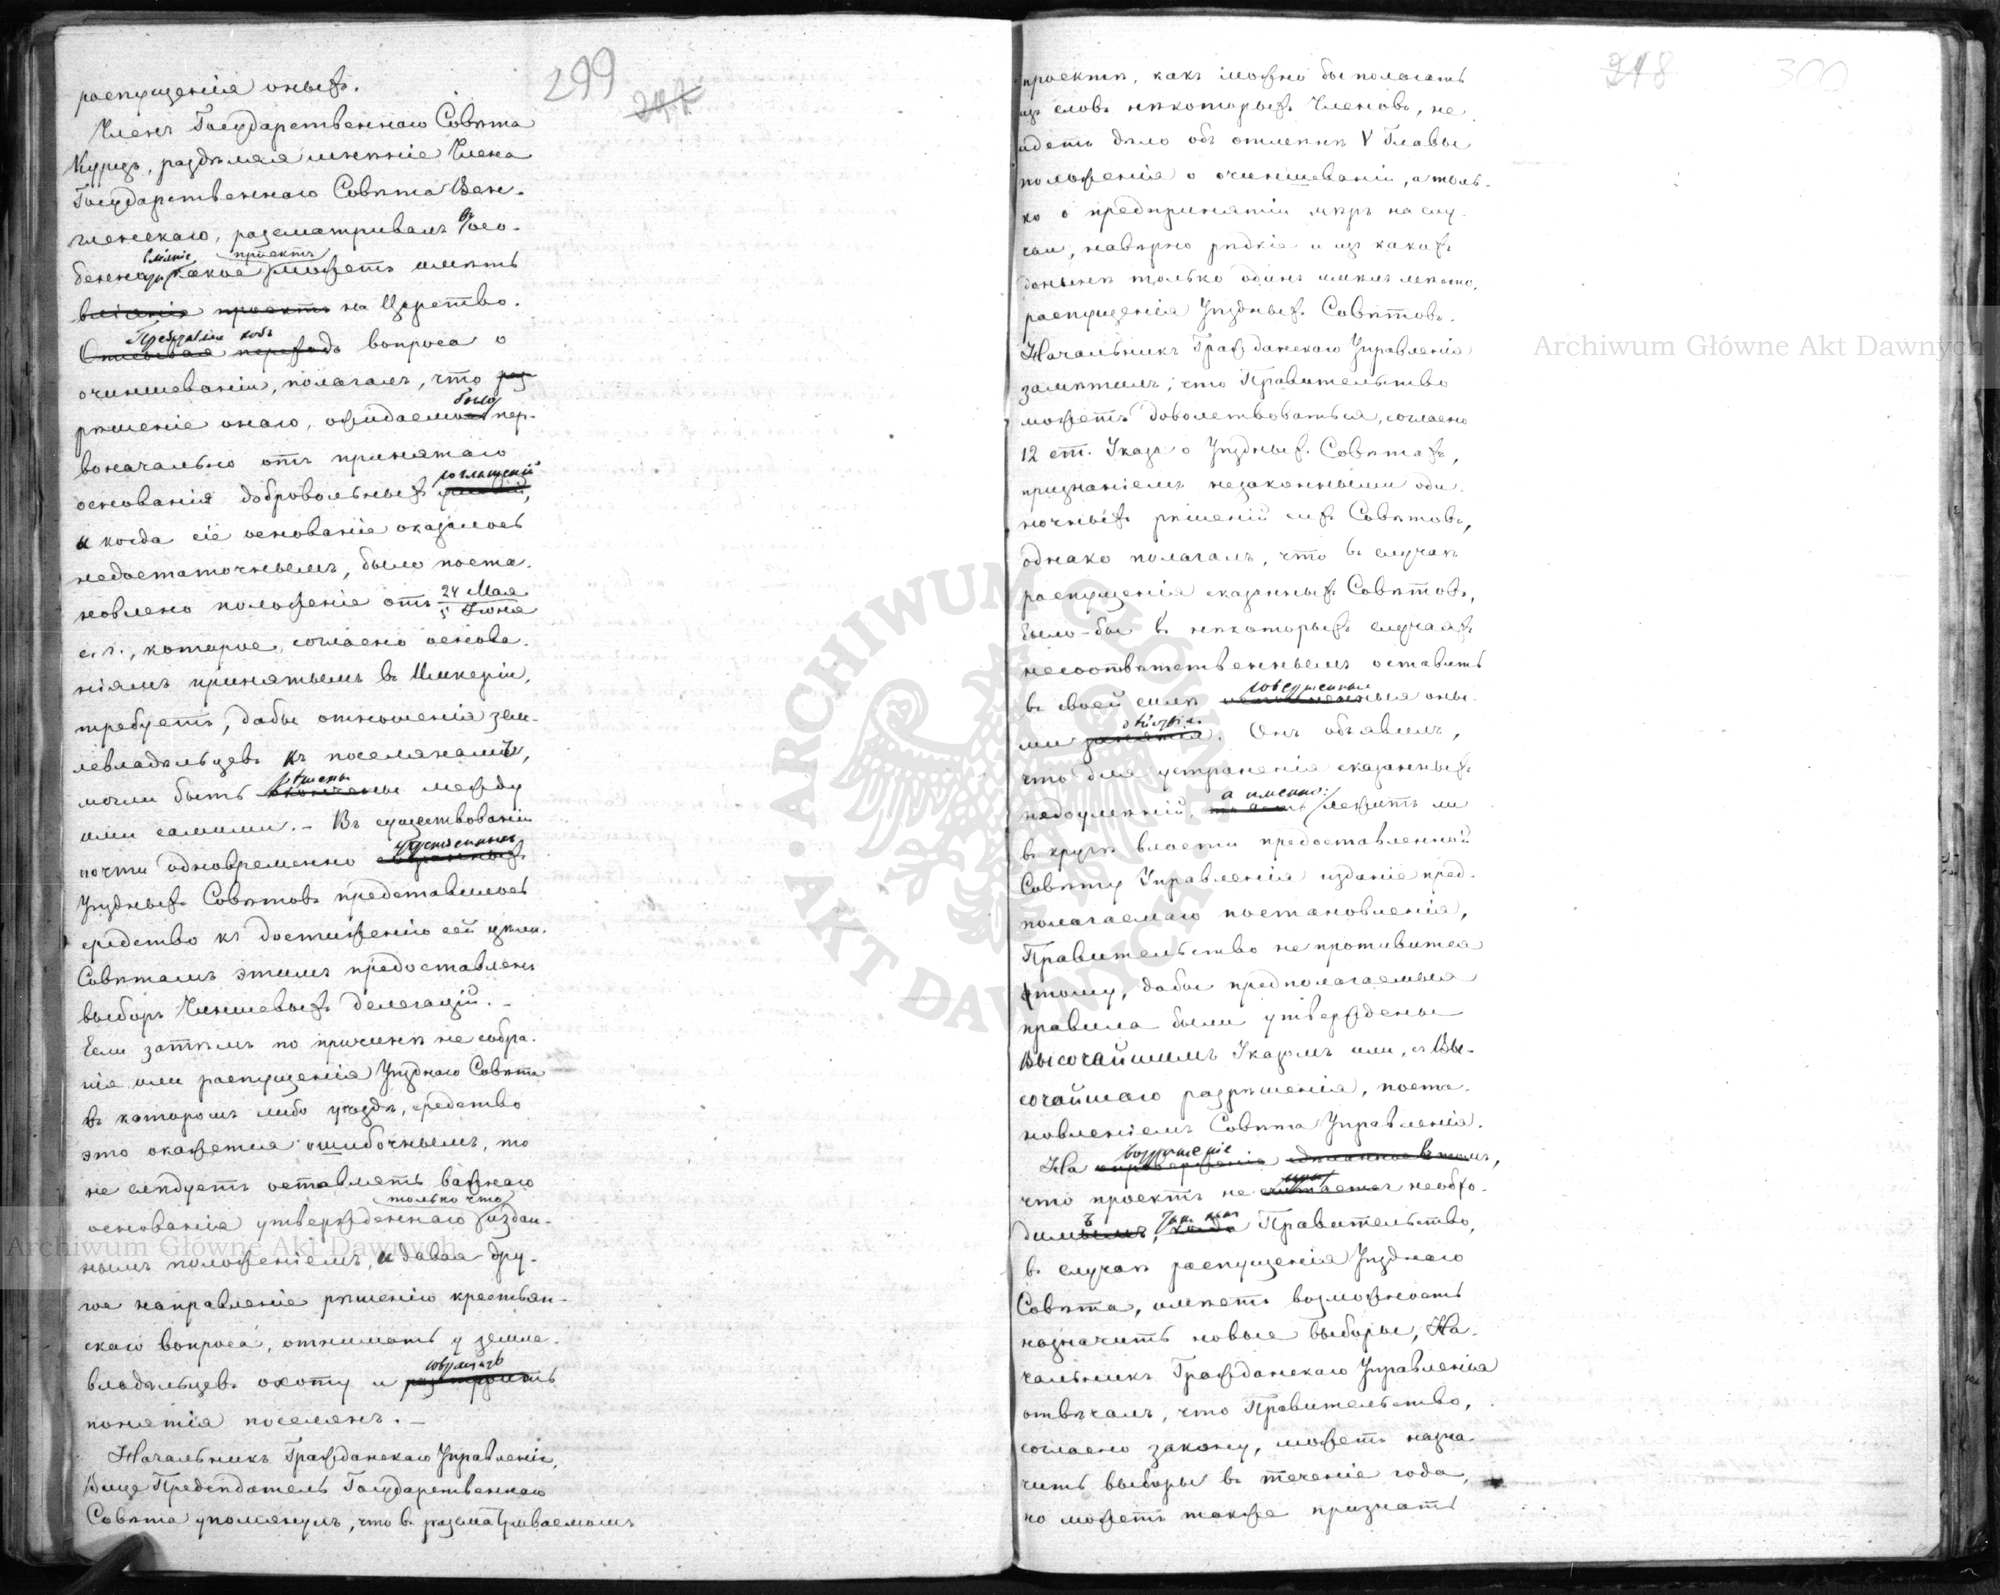 299
247
распущенія оныхъ.
Членъ Государственнаго Совѣта
Курцъ, раздѣляя мнѣніе Члена
Государственнаго Совѣта Вен-
гленскаго, разсматривалъ въ осо-
бенности вліяніе, какое проектъ можетъ имѣть
вліяніе проектъ на Царство.
Описывая переходъ вопроса о
очиншеваніи, полагалъ, что раз
рѣшеніе онаго, ожидаемо было пер-
воначально отъ принятаго
основанія добровольныхъ соглашеній,
и когда сіе основаніе оказалось
недостаточнымъ, было поста-
новлено положеніе отъ 24 Мая / 5 Іюня
с. г., которое, согласно основа-
ніямъ принятымъ въ Имперіи,
требуетъ, дабы отношенія зем-
левладѣльцевъ къ поселянамъ,
могли быть рѣшены между
ими самими. – Въ существованіи
почти одновременно учрежденныхъ
Уѣздныхъ Совѣтовъ представилось
средство къ достиженію сей цѣли.
Совѣтамъ этимъ предоставленъ
выборъ Чиншевыхъ Делегацій. –
Если затѣмъ по причинѣ не собра-
нія или распущенія Уѣзднаго Совѣта
въ которомъ либо уѣздѣ, средство
это окажется ошибочнымъ, то
не слѣдуетъ оставлять важнаго
основанія утвержденнаго только что издан-
нымъ положеніемъ, и давая дру-
гое направленіе рѣшенію крестьян-
скаго вопроса, отнимать у земле-
владѣльцевъ охоту и
понятія поселянъ. –
Начальникъ Гражданскаго Управленія,
Вице Предсѣдатель Государственнаго
Совѣта упомянулъ, что въ разсматриваемомъ
218
300
проектѣ, какъ можно бы полагать
изъ словъ нѣкоторыхъ Членовъ, не
идетъ дѣло объ отмѣнѣ V Главы
положенія о очиншеваніи, а толь-
ко о предпринятіи мѣръ на слу-
чаи, навѣрно рѣдкіе и изъ какихъ
донынѣ только одинъ имѣлъ мѣсто,
распущенія Уѣздныхъ Совѣтовъ.
Начальникъ Гражданскаго Управленія
замѣтилъ, что Правительство
можетъ довольствоваться, согласно
12 ст. Указа о Уѣздныхъ Совѣтахъ,
признаніемъ незаконными оди-
ночныхъ рѣшеній сихъ Совѣтовъ,
однако полагалъ, что въ случаѣ
распущенія сказанныхъ Совѣтовъ,
было-бы въ нѣкоторыхъ случаяхъ
несоотвѣтственнымъ оставить
въ своей силѣ совершенныя оны-
ми дѣйствія. Онъ объявилъ,
что для устраненія сказанныхъ
недоумѣній, а именно: лежитъ ли
въ кругѣ власти предоставленной
Совѣту Управленія изданіе пред-
полагаемаго постановленія,
Правительство не противится
тому, дабы предполагаемыя
правила были утверждены
Высочайшимъ Указомъ или, съ Вы-
сочайшаго разрѣшенія, поста-
новленіемъ Совѣта Управленія.
На возраженіе
что проектъ не необхо-
димъ, такъ какъ Правительство,
въ случаѣ распущенія Уѣзднаго
Совѣта, имѣетъ возможность
назначить новые выборы, На-
чальникъ Гражданскаго Управленія
отвѣчалъ, что Правительство,
согласно закону, можетъ назна-
чить выборы въ теченіе года,
но можетъ также признать
Archiwum Główne Akt Dawnych
Archiwum Główne Akt Dawnych
ARCHIWUM GŁÓWNE AKT DAWNYCH